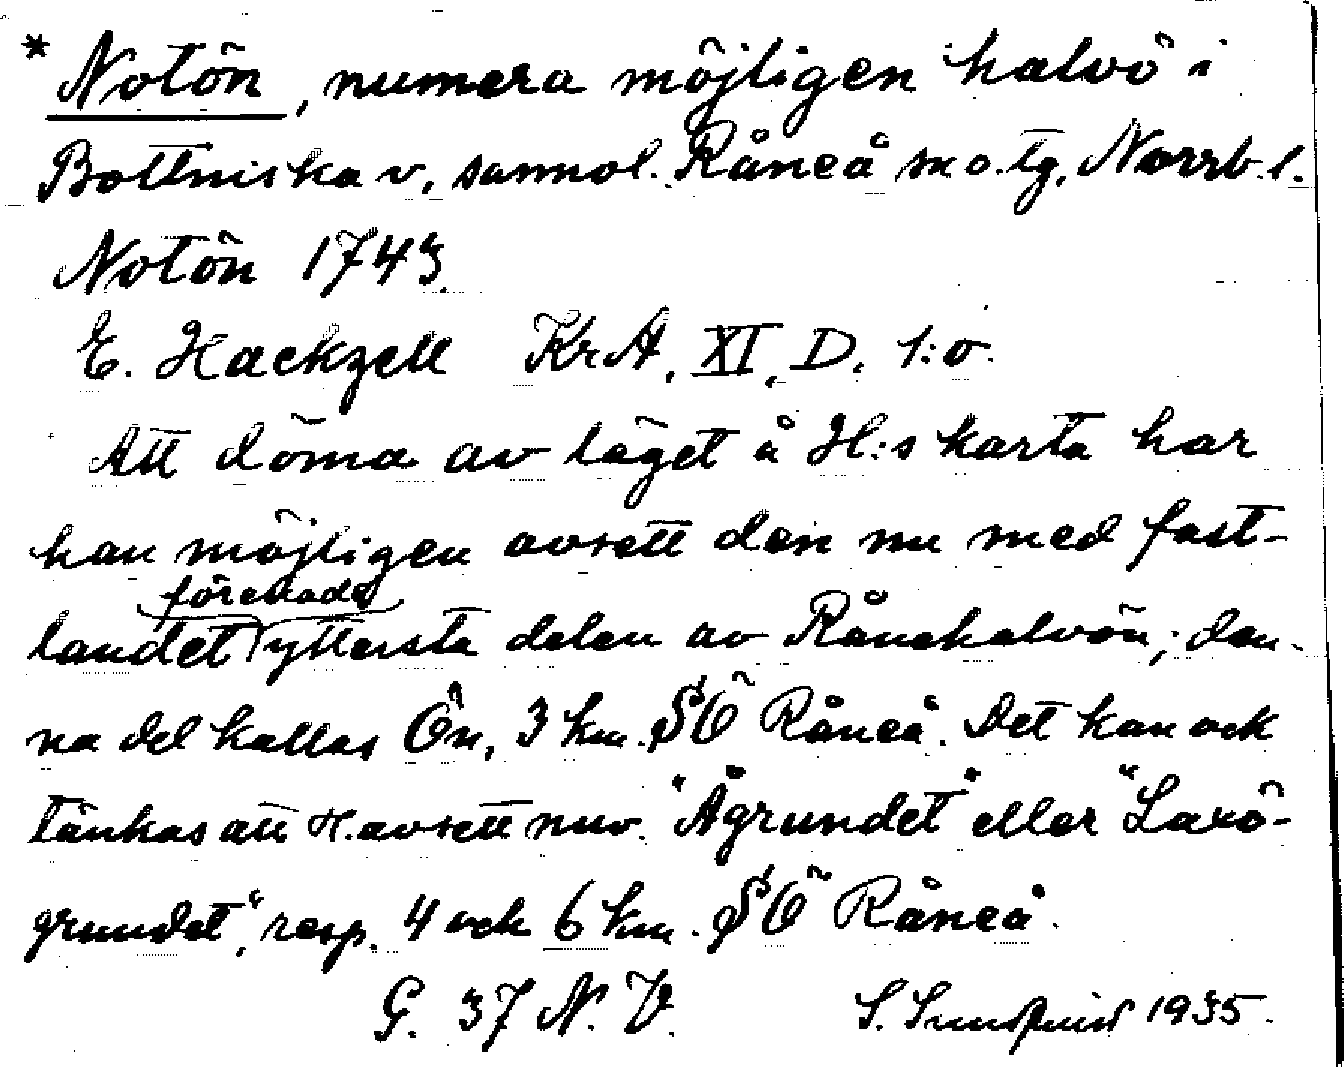 * Notön, numera möjligen halvö i
Bottniska v, sannol. Råneå sn o. tg, Norrb. l.
Notön 1743.
E. Hackzell KrA, XI, D. 1:o.
Att döma av läget å H:s karta har
han möjligen avsett den nu med fast-
förenade
landet yttersta delen av Rånehalvön; den-
na del kallas Ön, 3 km. SÖ Råneå. Det kan ock
tänkas att H. avsett nuv. "Ågrundet" eller "Laxö-
grundet", resp. 4 och 6 km. SÖ Råneå.
G. 37 N. V. S. Sundquist 1935.